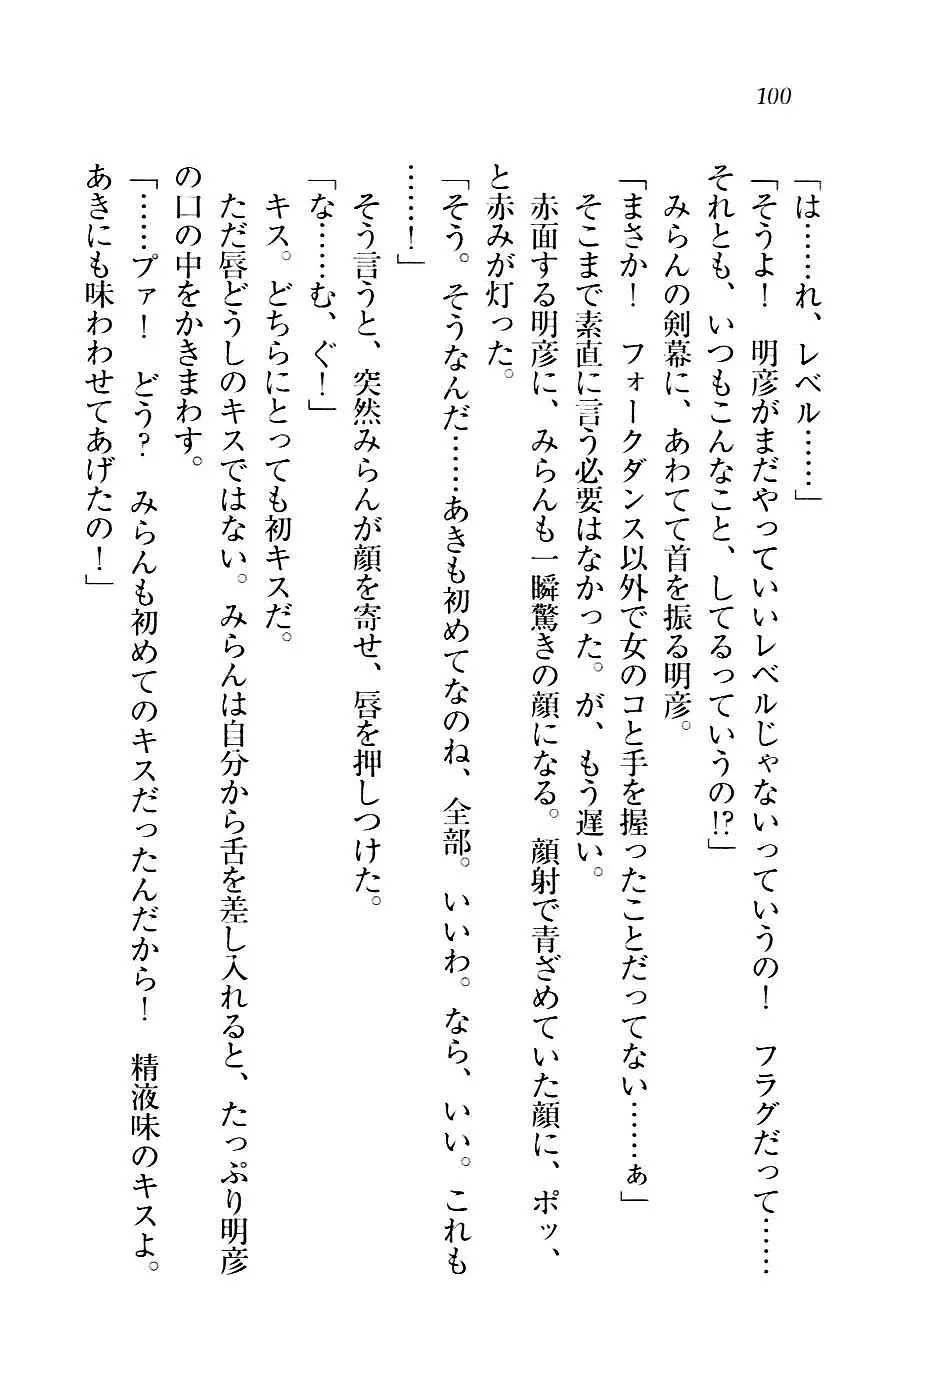 100
「は……れ、レベル……」
「そうよ！　明彦がまだやっていいレベルじゃないっていうの！　フラグだって……
それとも、いつもこんなこと、してるっていうの!?」
　みらんの剣幕に、あわてて首を振る明彦。
「まさか！　フォークダンス以外で女のコと手を握ったことだってない……ぁ」
　そこまで素直に言う必要はなかった。が、もう遅い。
　赤面する明彦に、みらんも一瞬驚きの顔になる。顔射で青ざめていた顔に、ポッ、
と赤みが灯った。
「そう。そうなんだ……あきも初めてなのね、全部。いいわ。なら、いい。これも
……！」
　そう言うと、突然みらんが顔を寄せ、唇を押しつけた。
「な……む、ぐ！」
　キス。どちらにとっても初キスだ。
　ただ唇どうしのキスではない。みらんは自分から舌を差し入れると、たっぷり明彦
の口の中をかきまわす。
「……プァ！　どう？　みらんも初めてのキスだったんだから！　精液味のキスよ。
あきにも味わわせてあげたの！」